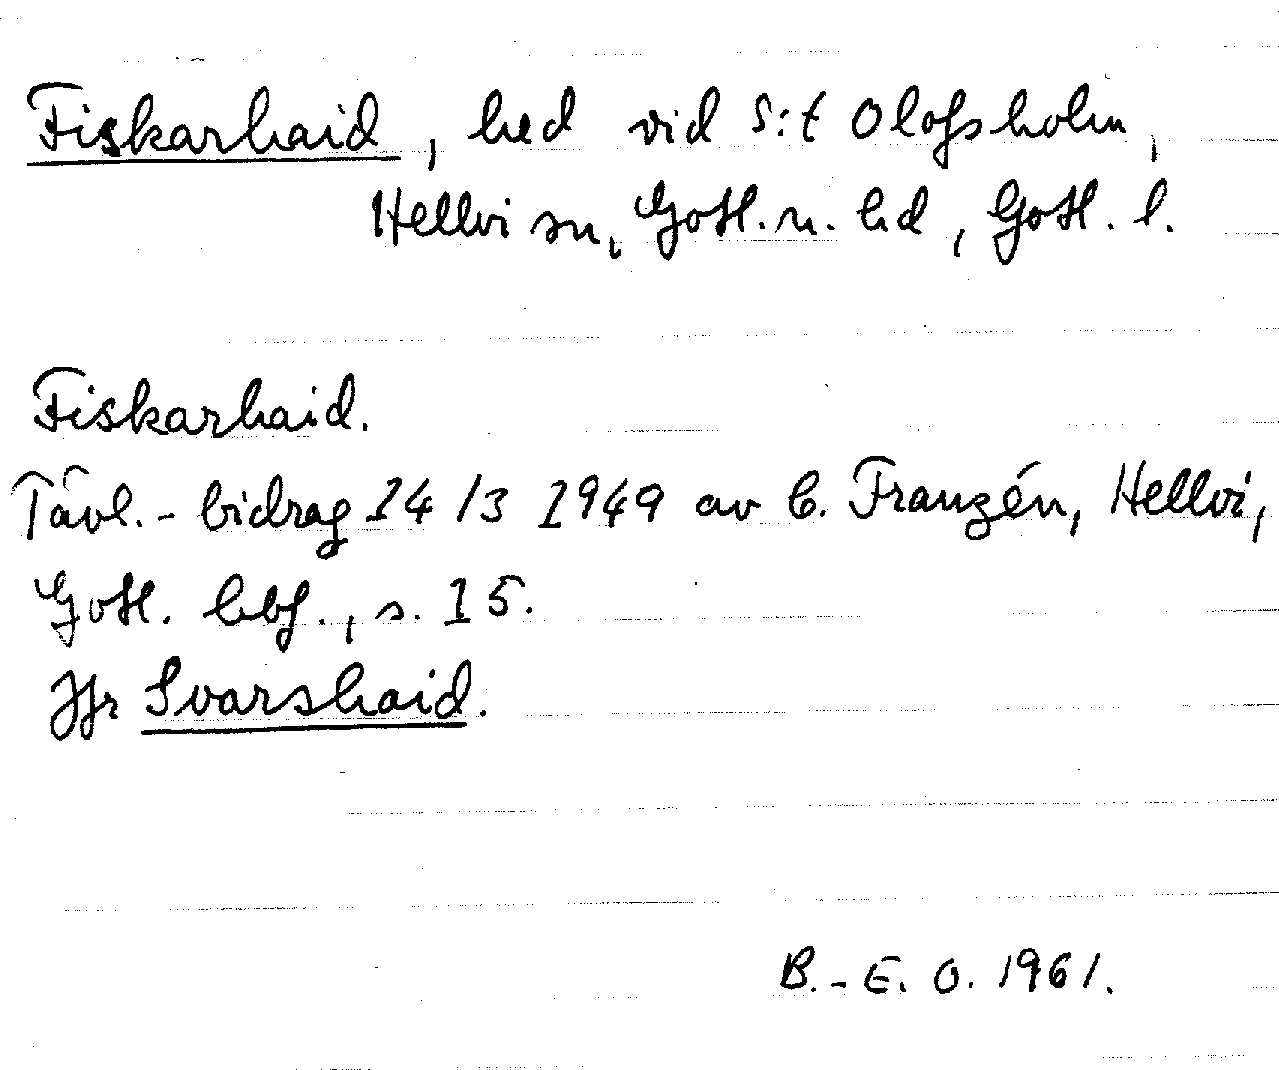 Fiskarhaid, hed vid S:t Olofsholm,
Hellvi sn, Gotl. n. hd, Gotl. l.
Fiskarhaid.
Tävl.-bidrag 14/3 1949 av C. Franzén, Hellvi,
Gotl. hbf., s. 15.
Jfr Svarshaid.
B.-E. O. 1961.